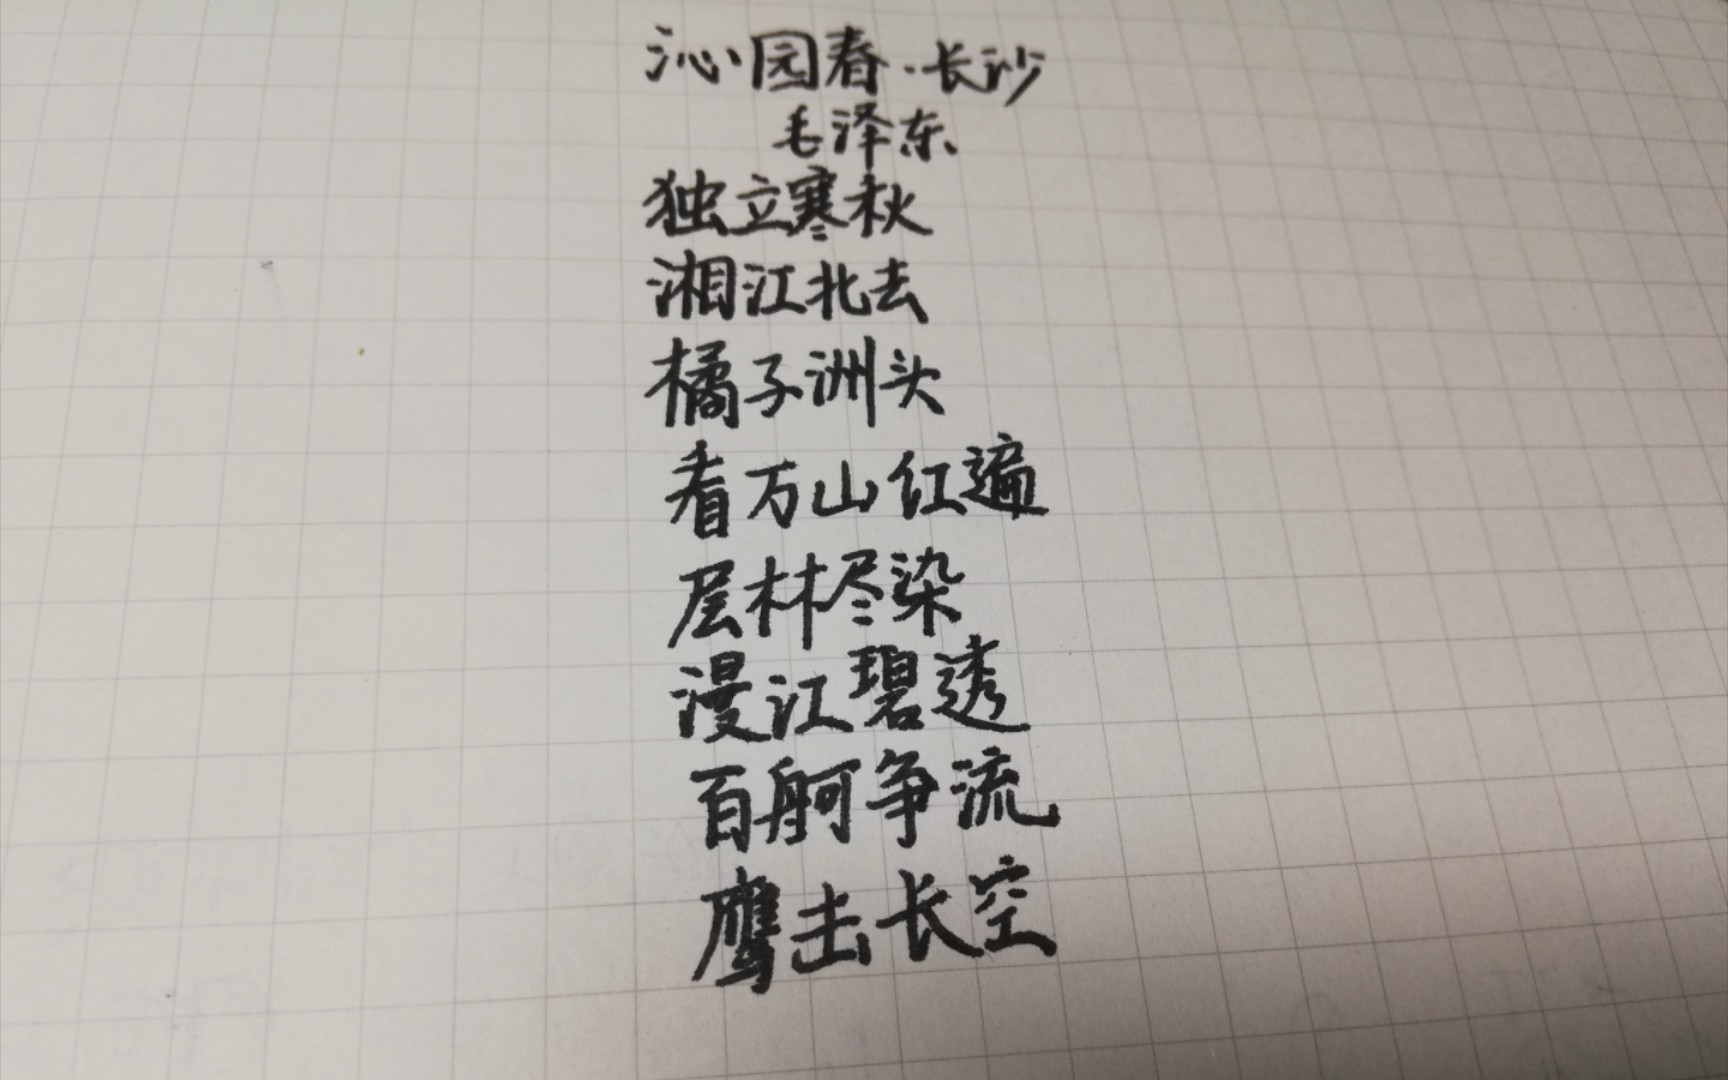 沁园春·长沙
毛泽东
独立寒秋
湘江北去
橘子洲头
看万山红遍
层林尽染
漫江碧透
百舸争流
鹰击长空